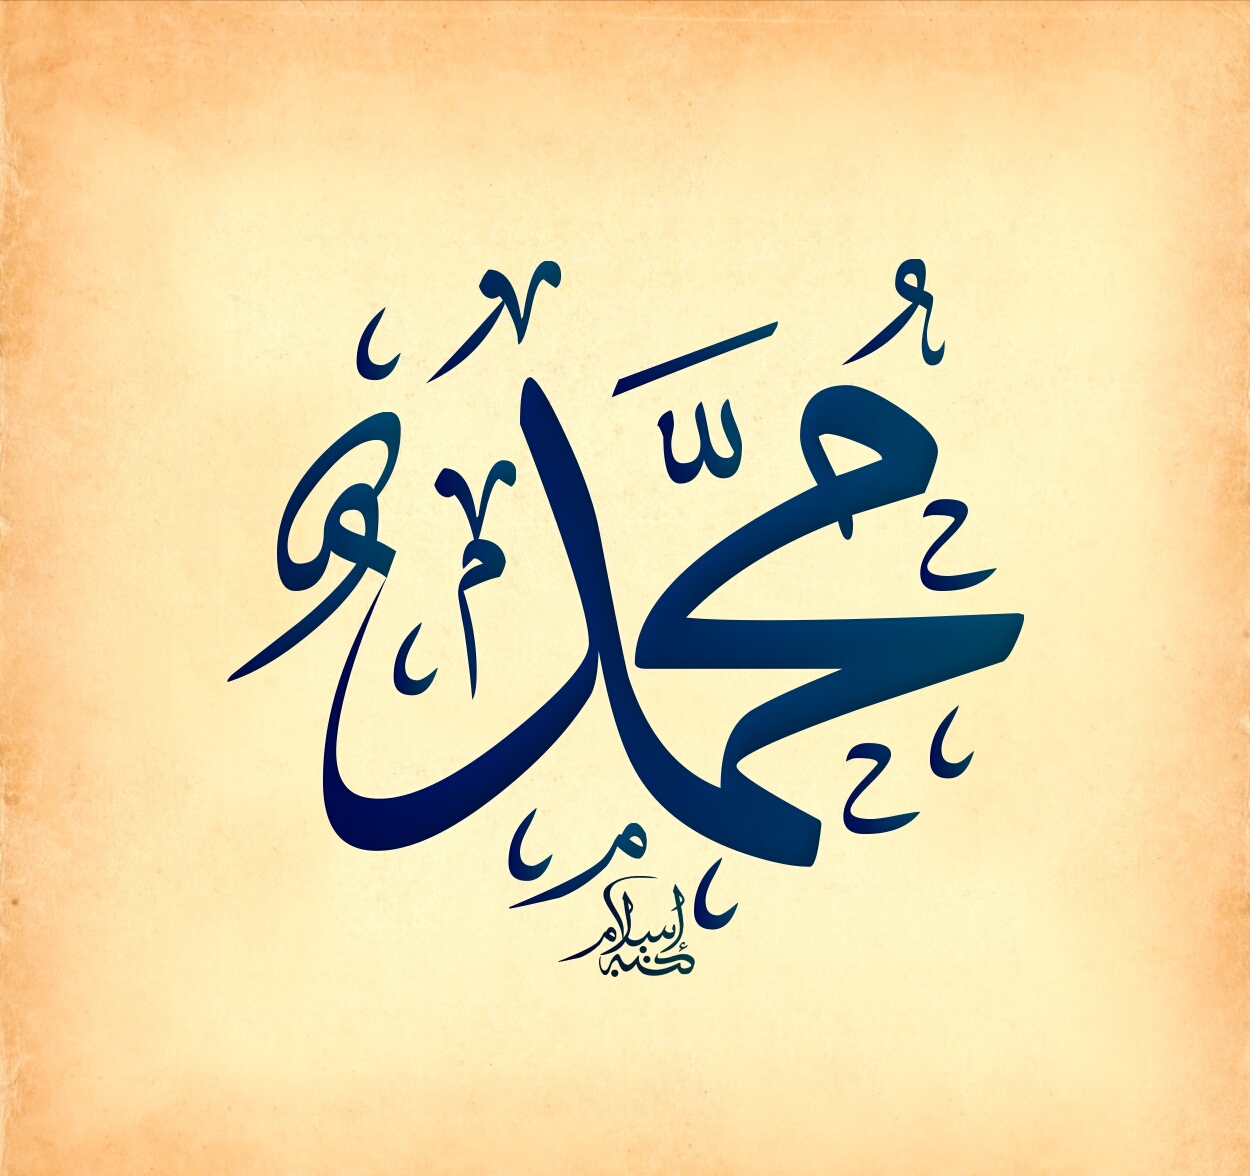 مُحَمَّد
كتبه إسلام